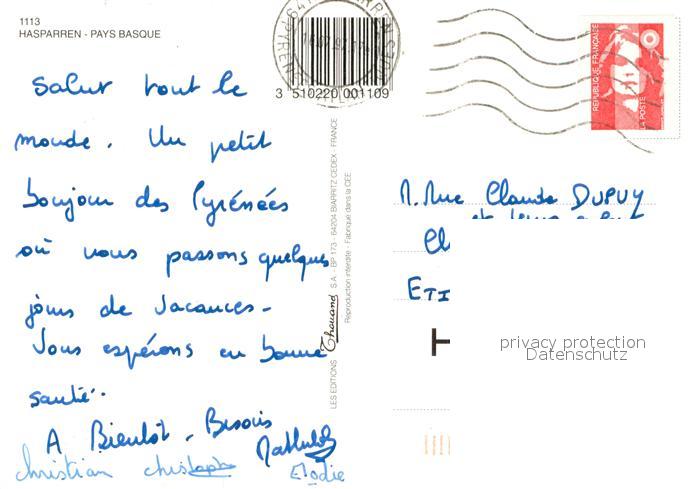 1113
HASPARREN - PAYS BASQUE
3 510220 001109
REPUBLIQUE FRANÇAISE
LA POSTE
Salut tout le
monde. Un petit
bonjour des Pyrénées
où nous passons quelques
jours de vacances.
Vous espérons en bonne
santé.
A Bientôt. Bisous
Christian Christophe Elodie
LES EDITIONS Thouand S.A. - BP 173 - 64204 BIARRITZ CEDEX - FRANCE
Reproduction interdite - Fabriqué dans la CEE
M. Mme Claude DUPUY
et leurs
Cl
ETI
privacy protection
Datenschutz